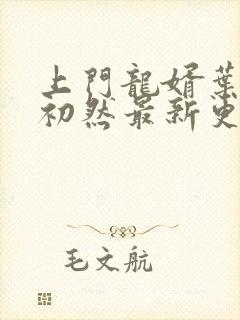 上門龍婿葉
初然最新更
毛文航